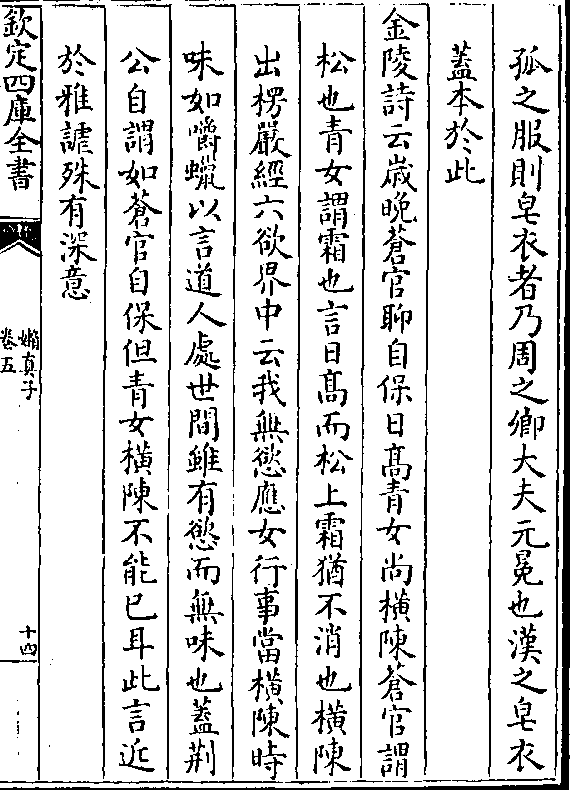 孤之服則皂衣者乃周之卿大夫元冕也漢之皂衣
蓋本於此
金陵詩云歳晚蒼官聊自保日髙青女尚横陳蒼官謂
松也青女謂霜也言日髙而松上霜猶不消也横陳
出楞嚴經六欲界中云我無慾應女行事當横陳時
味如嚼蠟以言道人處世間雖有慾而無味也蓋荆
公自謂如蒼官自保但青女横陳不能已耳此言近
於雅謔殊有深意
欽定四庫全書
嬾真子
卷五
十四